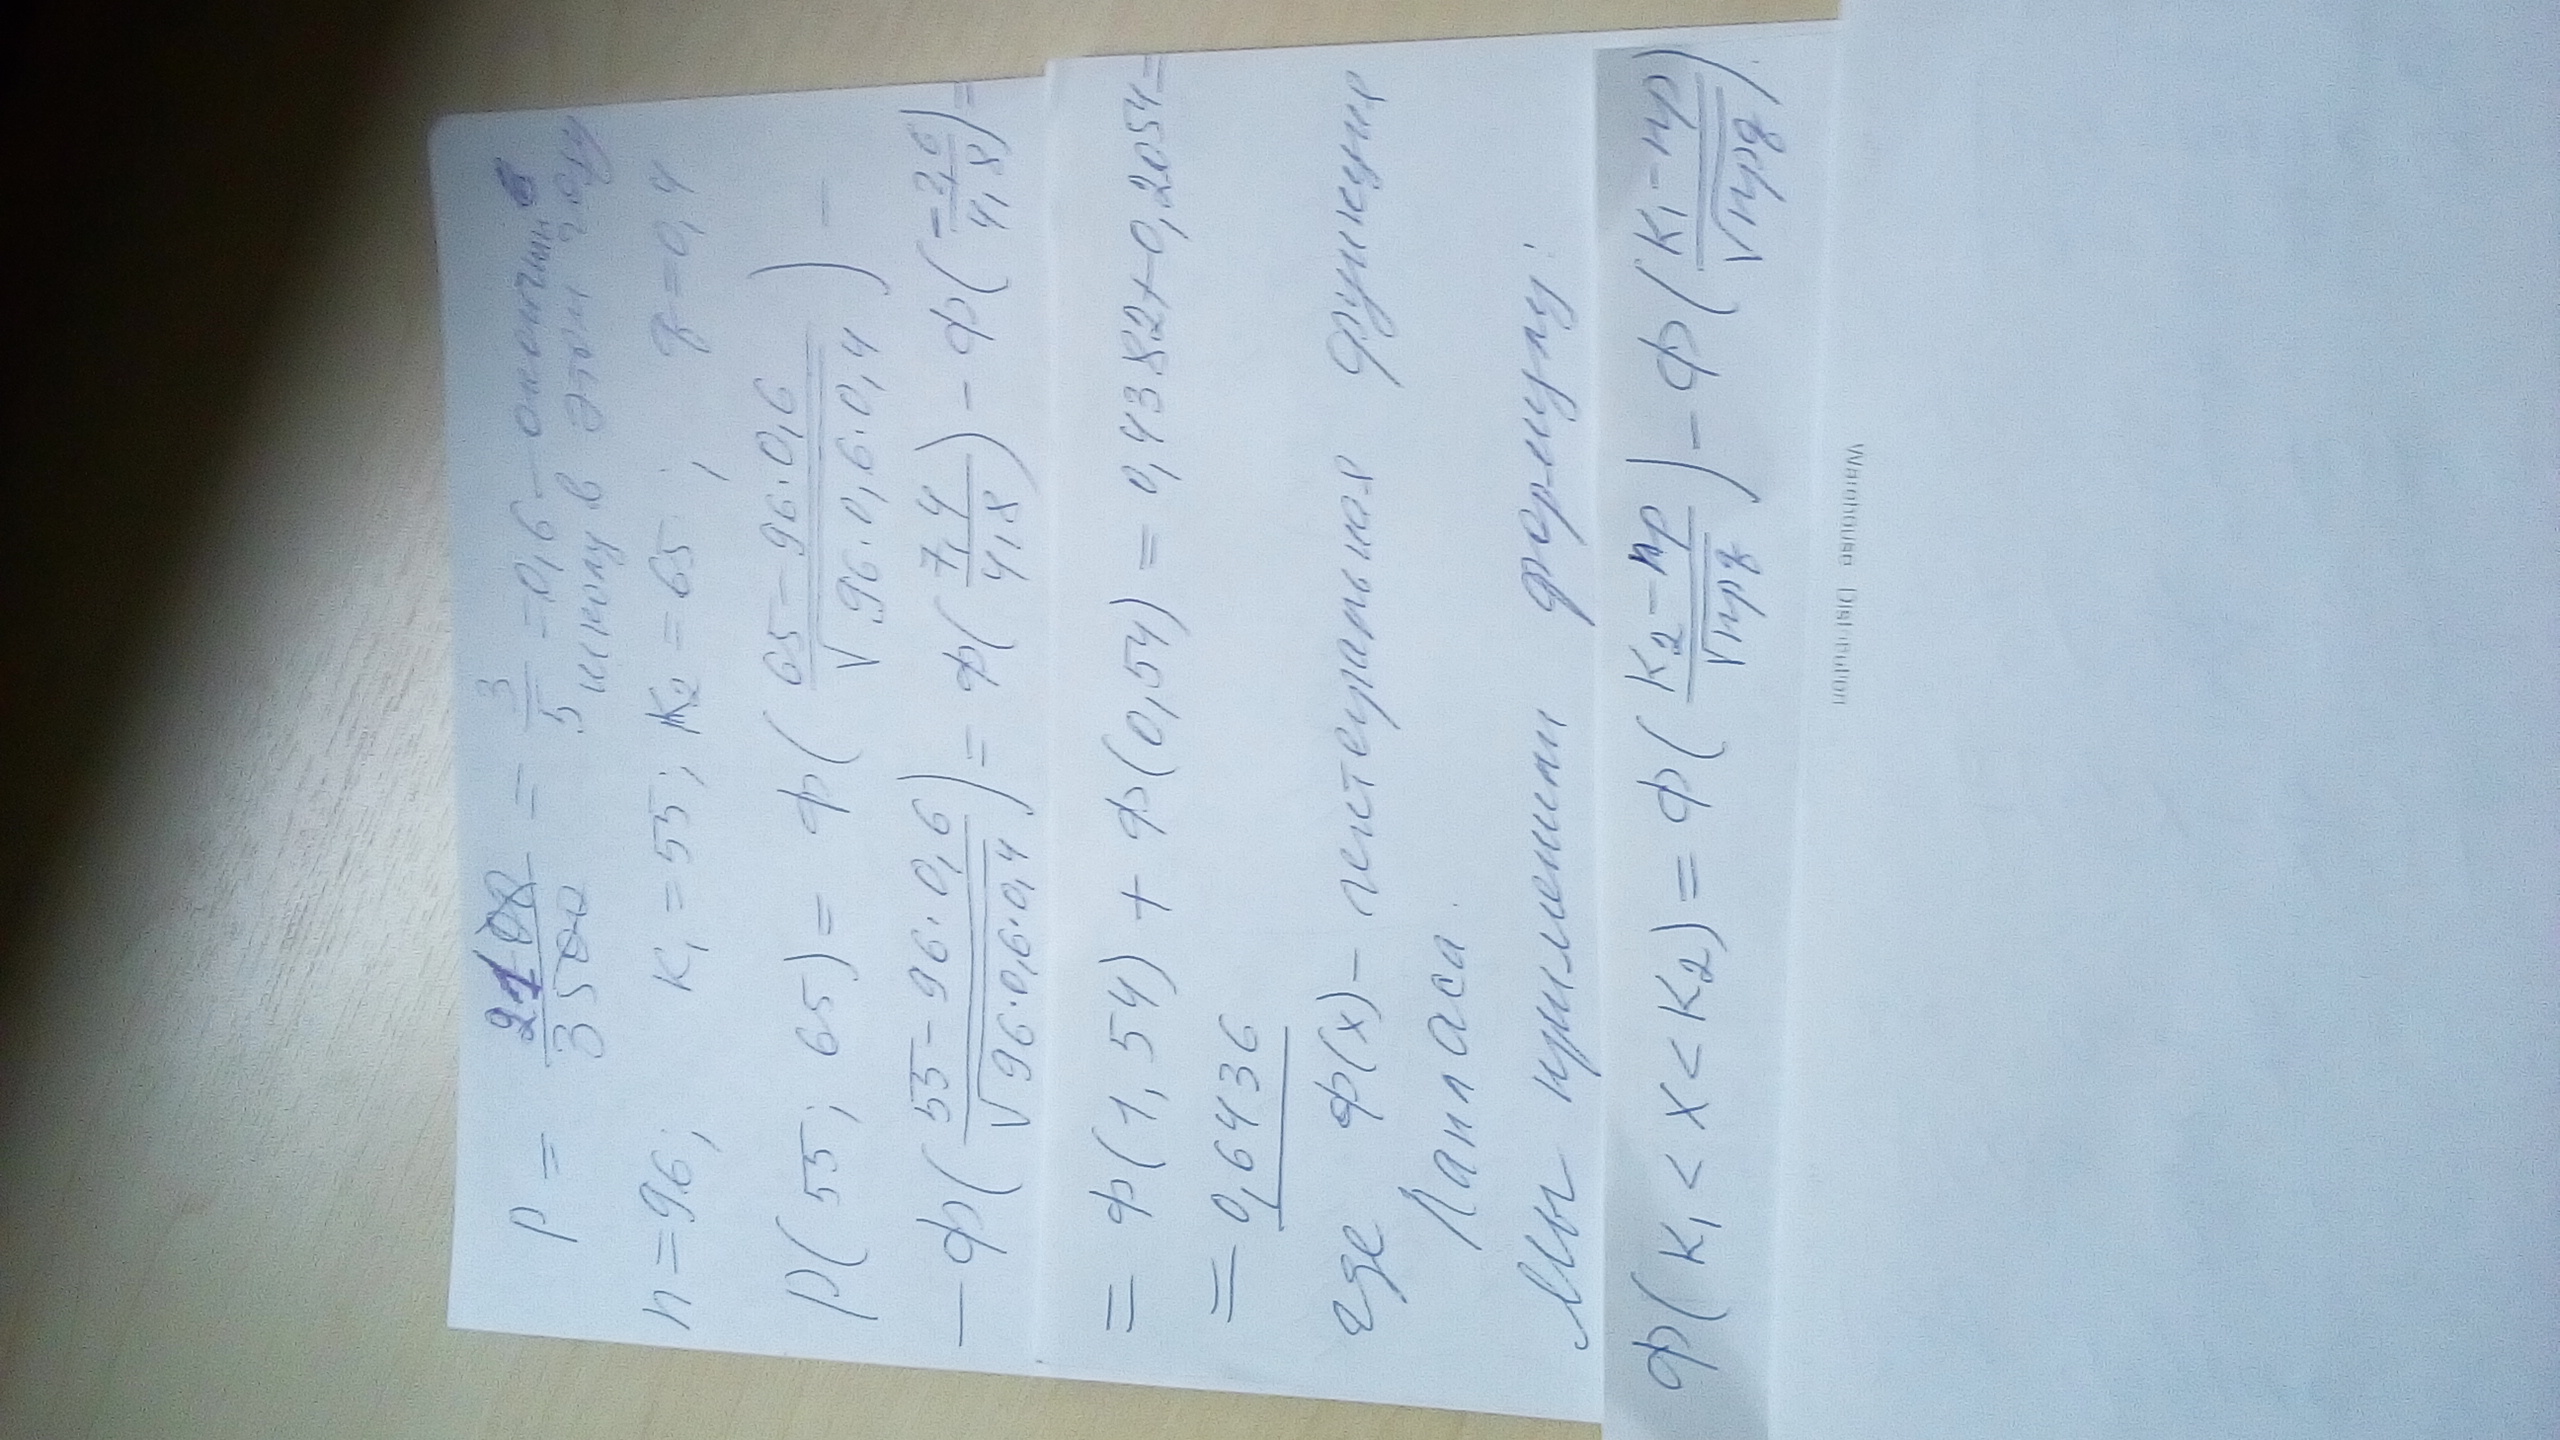 P = 2100/3500 = 3/5 = 0,6 – окончили
школу в этом году
n = 96; K₁ = 55; K₂ = 65; q = 0,4
P(55; 65) = Ф((65 – 96·0,6)/√(96·0,6·0,4)) –
– Ф((55 – 96·0,6)/√(96·0,6·0,4)) = Ф(7,4/4,8) – Ф(–2,6/4,8) =
= Ф(1,54) + Ф(0,54) = 0,4382 + 0,2054 =
= 0,6436
где Ф(x) – интегральная функция
Лапласа.
Мы применили формулу:
Ф(K₁ < X < K₂) = Ф((K₂ – np)/√npq) – Ф((K₁ – np)/√npq).
Warehouse Distribution